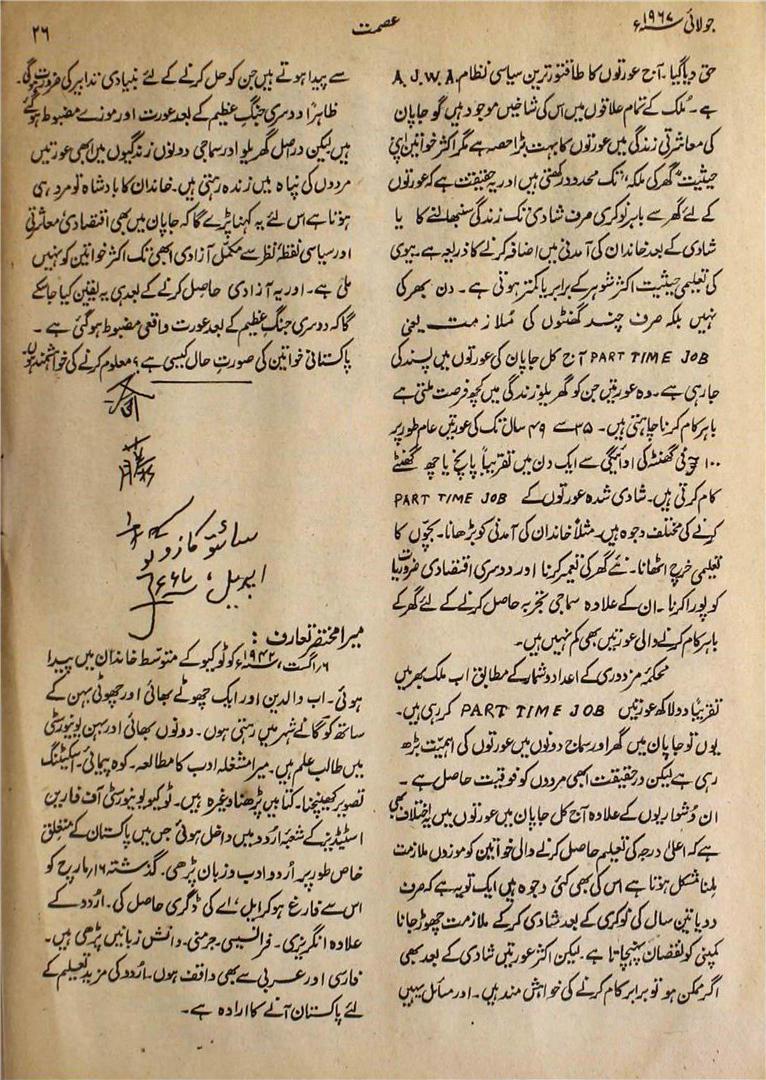 جولائی ۱۹۶۷ء
عصمت
۲۶
حق دیا گیا۔ آج عورتوں کا طاقتور ترین سیاسی نظام A. J. W. A.
ہے۔ ملک کے تمام علاقوں میں اس کی شاخیں موجود ہیں گو جاپان
کی معاشرتی زندگی میں عورتوں کا بہت بڑا حصہ ہے مگر اکثر خواتین اپنی
حیثیت "گھر کی ملکہ" تک محدود رکھتی ہیں اور یہ حقیقت ہے کہ عورتوں
کے لئے گھر سے باہر نوکری صرف شادی تک زندگی سنبھالنے کا یا
شادی کے بعد خاندان کی آمدنی میں اضافہ کرنے کا ذریعہ ہے۔ بیوی
کی تعلیمی حیثیت اکثر شوہر کے برابر یا کمتر ہوتی ہے۔ دن بھر کی
نہیں بلکہ صرف چند گھنٹوں کی ملازمت یعنی
PART TIME JOB آج کل جاپان کی عورتوں میں پسند کی
جا رہی ہے۔ وہ عورتیں جن کو گھریلو زندگی میں کچھ فرصت ملتی ہے
باہر کام کرنا چاہتی ہیں۔ ۳۵ سے ۴۹ سال تک کی عورتیں عام طور پر
۱۰۰ فی گھنٹہ کی ادائیگی سے ایک دن میں تقریباً پانچ یا چھ گھنٹے
کام کرتی ہیں۔ شادی شدہ عورتوں کے PART TIME JOB
کرنے کی مختلف وجوہ ہیں۔ مثلاً خاندان کی آمدنی کو بڑھانا۔ بچوں کا
تعلیمی خرچ اٹھانا۔ نئے گھر کی تعمیر کرنا اور دوسری اقتصادی ضروریات
کو پورا کرنا۔ ان کے علاوہ سماجی تجربہ حاصل کرنے کے لئے گھر کے
باہر کام کرنے والی عورتیں بھی کم نہیں ہیں۔
محکمۂ مزدوری کے اعداد و شمار کے مطابق اب ملک بھر میں
تقریباً دو لاکھ عورتیں PART TIME JOB کر رہی ہیں۔
یوں تو جاپان میں گھر اور سماج دونوں میں عورتوں کی اہمیت بڑھ
رہی ہے لیکن درحقیقت ابھی مردوں کو فوقیت حاصل ہے۔
ان دشواریوں کے علاوہ آج کل جاپان میں عورتوں میں یہ اختلاف بھی
ہے کہ اعلیٰ درجہ کی تعلیم حاصل کرنے والی خواتین کو موزوں ملازمت
ملنا مشکل ہوتا ہے اس کی بھی کئی وجوہ ہیں ایک تو یہ ہے کہ صرف
دو یا تین سال کی نوکری کے بعد شادی کر کے ملازمت چھوڑ جانا
کمپنی کو نقصان پہنچاتا ہے۔ لیکن اکثر عورتیں شادی کے بعد بھی
اگر ممکن ہو تو برابر کام کرنے کی خواہش مند ہیں۔ اور مسائل یہیں
سے پیدا ہوتے ہیں جن کو حل کرنے کے لئے بنیادی تدابیر کی ضرورت ہوگی۔
ظاہراً دوسری جنگِ عظیم کے بعد عورت اور موزے مضبوط ہو گئے
ہیں لیکن دراصل گھریلو اور سماجی دونوں زندگیوں میں ابھی عورتیں
مردوں کی پناہ میں زندہ رہتی ہیں۔ خاندان کا بادشاہ تو مرد ہی
ہوتا ہے اس لئے یہ کہنا پڑے گا کہ جاپان میں بھی اقتصادی معاشرتی
اور سیاسی نقطۂ نظر سے مکمل آزادی ابھی تک اکثر خواتین کو نہیں
ملی ہے۔ اور یہ آزادی حاصل کرنے کے بعد ہی یہ یقین کیا جا سکے
گا کہ دوسری جنگِ عظیم کے بعد عورت واقعی مضبوط ہو گئی ہے۔
پاکستانی خواتین کی صورتِ حال کیسی ہے؟ معلوم کرنے کی خواہشمند ہوں۔
سائتو کازوکو
اپریل، ۶۷ء
میرا مختصر تعارف:
۶ اگست، ۱۹۴۲ء کو ٹوکیو کے متوسط خاندان میں پیدا
ہوئی۔ اب والدین اور ایک چھوٹے بھائی اور چھوٹی بہن کے
ساتھ کوگانے شہر میں رہتی ہوں۔ دونوں بھائی اور بہن یونیورسٹی
میں طالب علم ہیں۔ میرا مشغلہ ادب کا مطالعہ۔ کوہ پیمائی۔ اسکیٹنگ
تصویر کھینچنا۔ کتابیں پڑھنا وغیرہ ہیں۔ ٹوکیو یونیورسٹی آف فارین
اسٹیڈیز کے شعبۂ اردو میں داخل ہوئی جس میں پاکستان کے متعلق
خاص طور پر اردو ادب و زبان پڑھی۔ گذشتہ ۱۶ مارچ کو
اس سے فارغ ہو کر ایل، اے کی ڈگری حاصل کی۔ اردو کے
علاوہ انگریزی۔ فرانسیسی۔ جرمنی۔ دانش زبانیں پڑھی ہیں۔
فارسی اور عربی سے بھی واقف ہوں۔ اردو کی مزید تعلیم کے
لئے پاکستان آنے کا ارادہ ہے۔